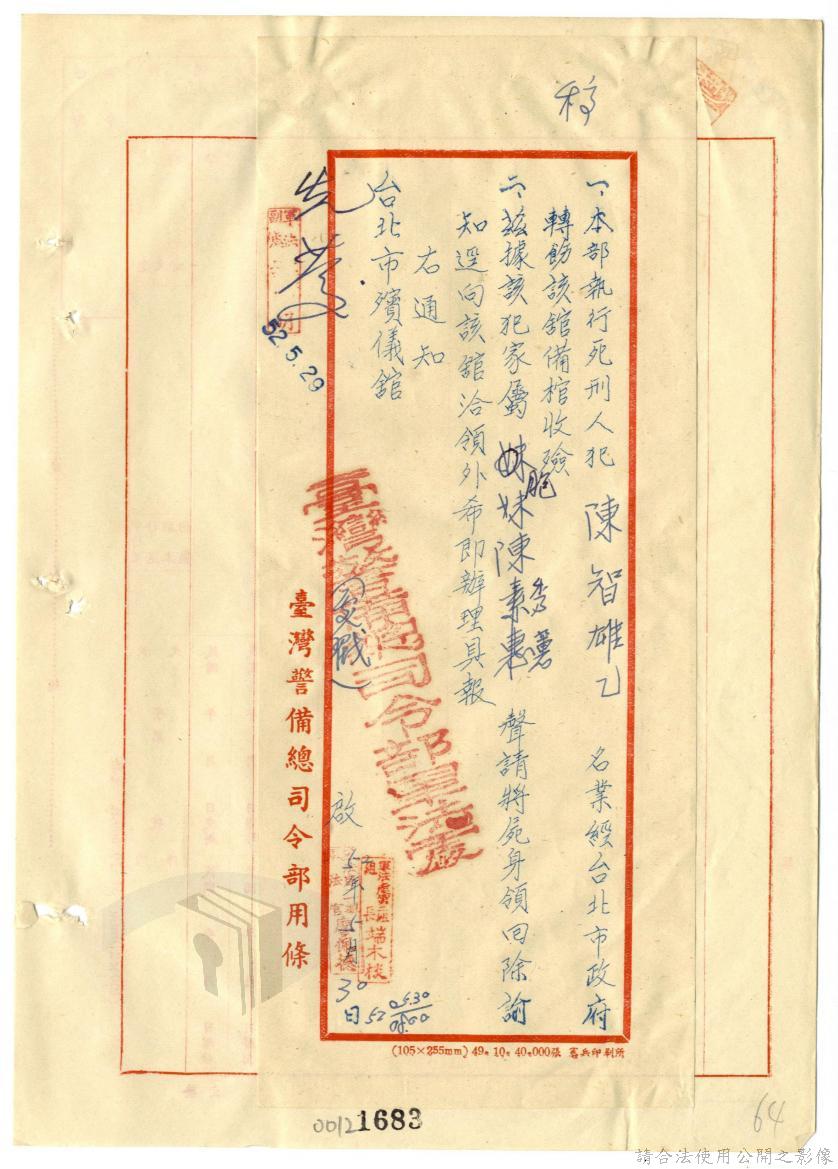 稿
一、本部執行死刑人犯陳智雄乙名業經台北市政府
轉飭該舘備棺收殮
二、茲據該犯家屬胞妹陳素香麗聲請將屍身領回除諭
知逕向該舘洽領外希即辦理具報
右通知
台北市殯儀舘
(愛戳)
啟
年5月30日
52 05.30
08.00
軍法處第二組
組長端木棪
臺灣警備總司令部軍法處
52.5.29
臺灣警備總司令部用條
(105×255mm) 49. 10. 40.000張 憲兵印刷所
00121683
64
請合法使用公開之影像